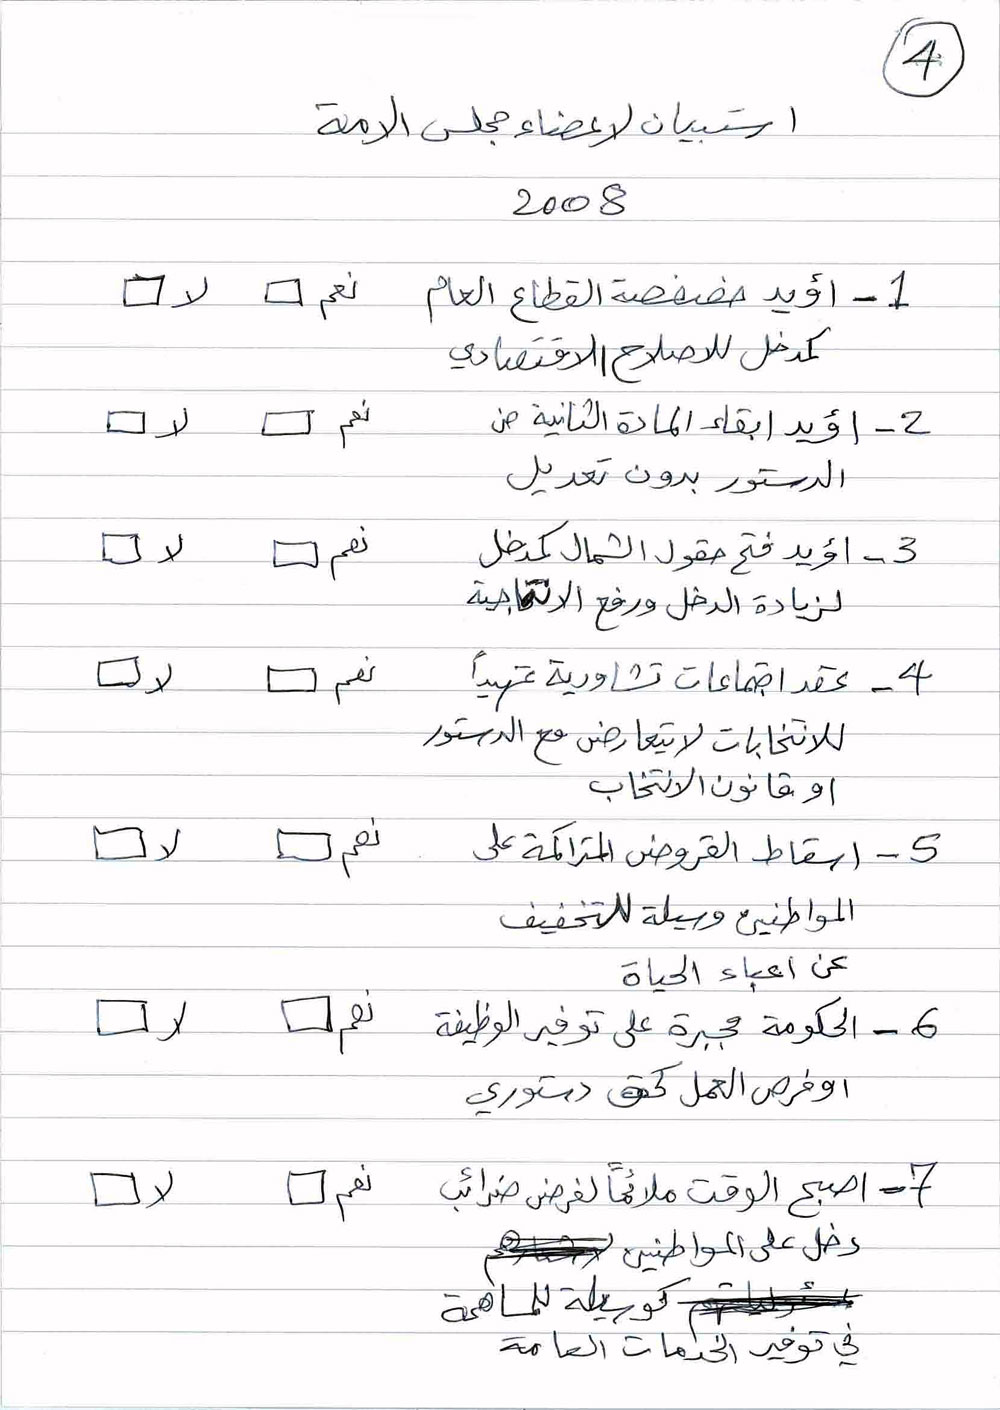 4
استبيان لاعضاء مجلس الامة
2008
1- اؤيد خصخصة القطاع العام نعم لا
كمدخل للاصلاح الاقتصادي
2- اؤيد ابقاء المادة الثانية من نعم لا
الدستور بدون تعديل
3- اؤيد فتح حقول الشمال كمدخل نعم لا
لزيادة الدخل ورفع الانتاجية
4- عقد اجتماعات تشاورية تمهيداً نعم لا
للانتخابات لا يتعارض مع الدستور
او قانون الانتخاب
5- اسقاط القروض المتراكمة على نعم لا
المواطنين وسيلة للتخفيف
عن اعباء الحياة
6- الحكومة مجبرة على توفير الوظيفة نعم لا
او فرص العمل كحق دستوري
7- اصبح الوقت ملائماً لفرض ضرائب نعم لا
دخل على المواطنين
كوسيلة للمساهمة
في توفير الخدمات العامة